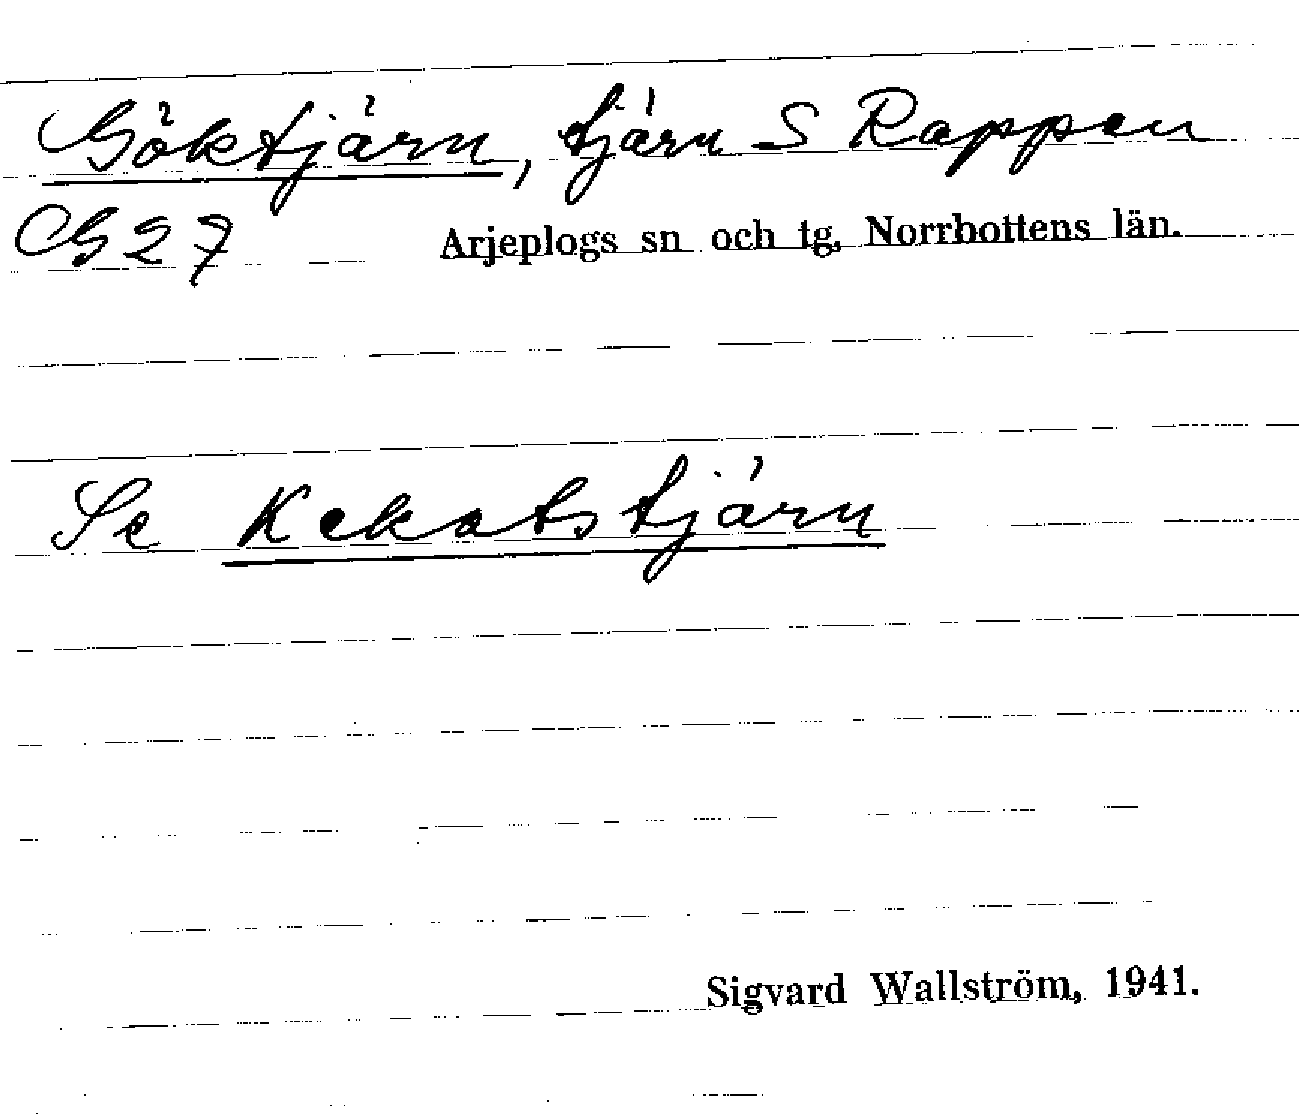 Göktjärn, tjärn S Rappen
G 27 Arjeplogs sn och tg, Norrbottens län.
Se Kekatstjärn
Sigvard Wallström, 1941.